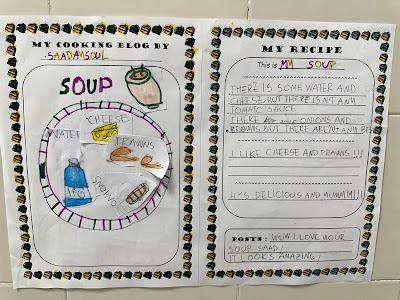 MY COOKING BLOG BY
SAADANSOUL
SOUP
CHEESE
WATER
PRAWNS
H2O
ONIONS
MY RECIPE
This is MY SOUP
THERE IS SOME WATER AND
CHEESE BUT THERE ISNT ANY
TOMATO SAUCE
THERE ARE ONIONS AND
PRAWNS BUT THERE AREN'T ANY
I LIKE CHEESE AND PRAWNS !!!
IT'S DELICIOUS AND YUMMY!!!
POSTS : WOW I LOVE YOUR
SOUP SAAD!
IT LOOKS AMAZING!